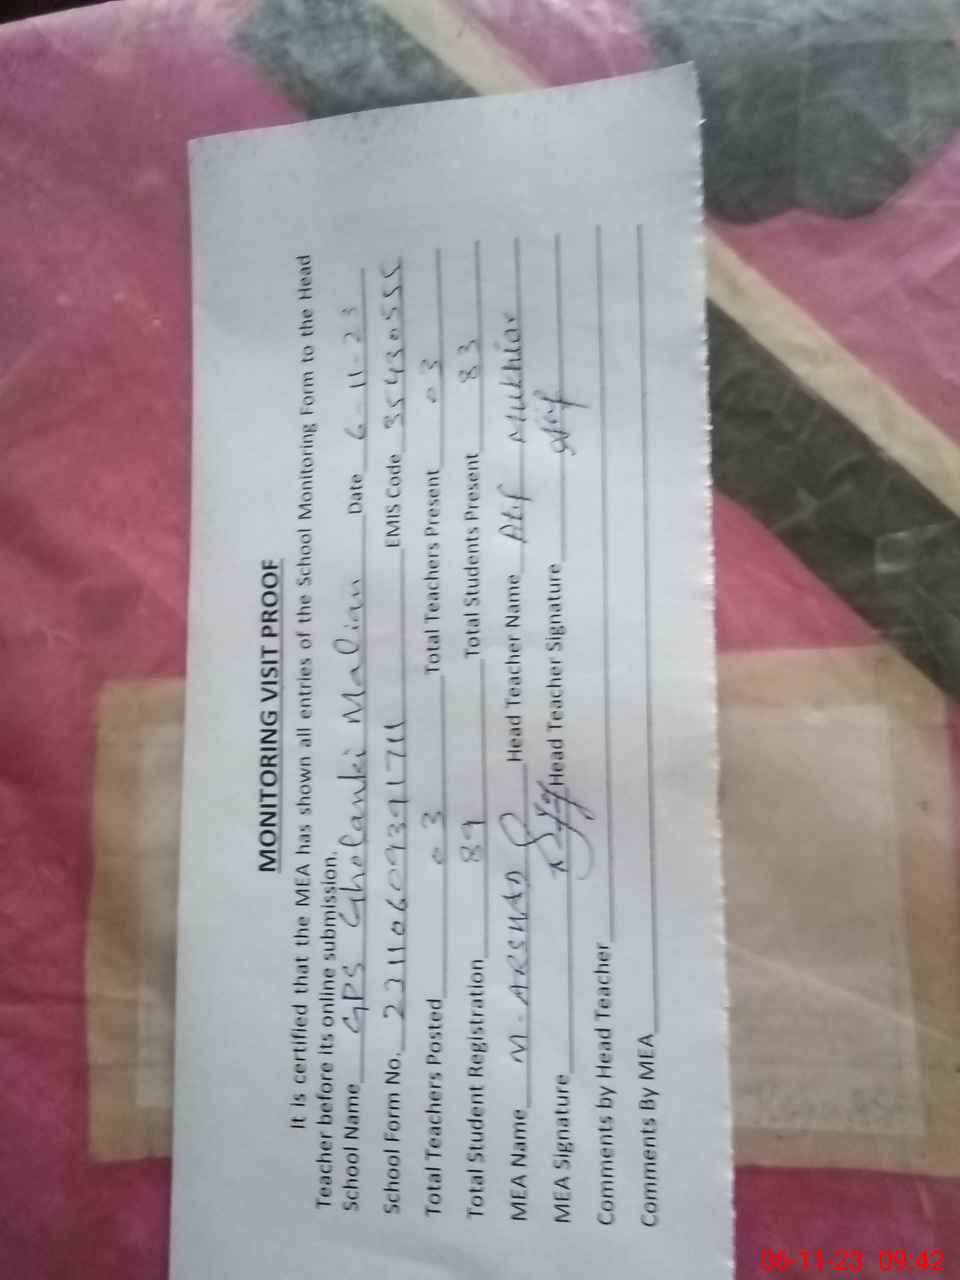 MONITORING VISIT PROOF
It is certified that the MEA has shown all entries of the School Monitoring Form to the Head
Teacher before its online submission.
School Name GPS Gholanki Malian Date 6-11-23
School Form No. 22110609391711 EMIS Code 35430555
Total Teachers Posted 03 Total Teachers Present 03
Total Student Registration 89 Total Students Present 83
MEA Name M-ARSHAD Head Teacher Name Atif Mukhtar
MEA Signature Head Teacher Signature Atif
Comments by Head Teacher
Comments By MEA
06-11-23 09:42